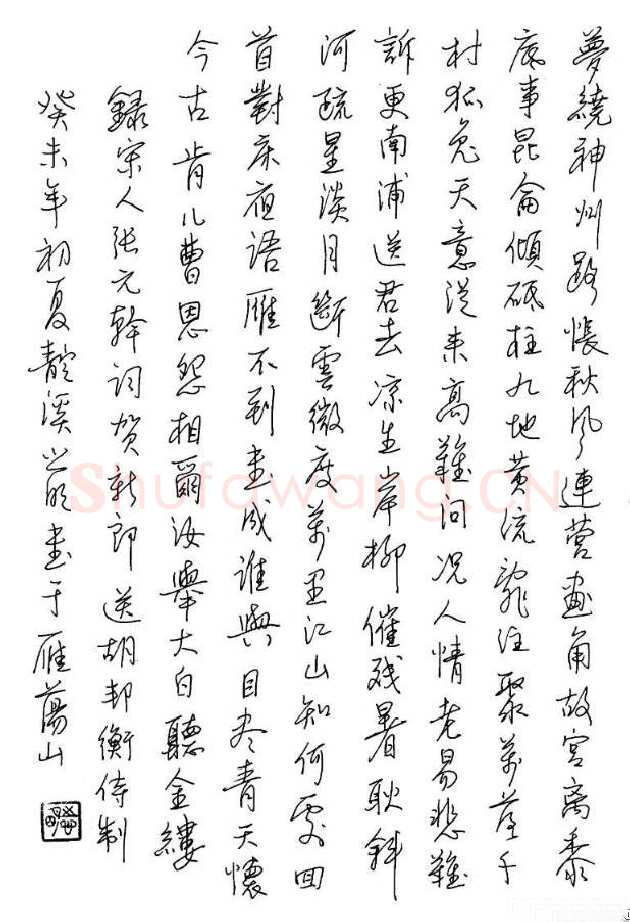 夢繞神州路悵秋風連營畫角故宮离黍
底事昆侖傾砥柱九地黄流亂注聚萬落千
村狐兔天意從來高難问况人情老易悲難
訴更南浦送君去凉生岸柳催殘暑耿斜
河疏星淡月斷雲微度萬里江山知何處回
首對床夜語雁不到書成谁與目尽青天懷
今古肯儿曹恩怨相爾汝舉大白聽金縷
録宋人张元幹词贺新郎送胡邦衡待制
癸未年初夏溪書于雁蕩山
Shufawang.CN